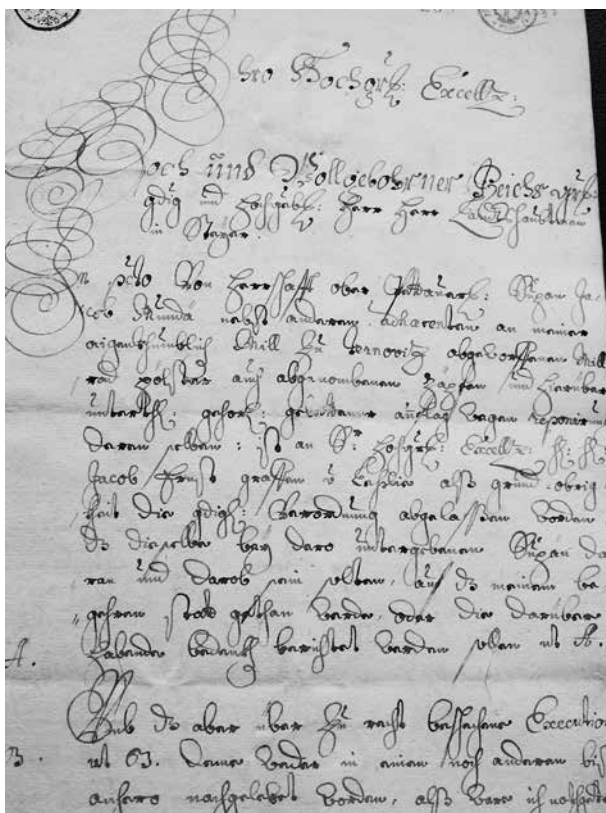 Ihro Hochgrfl: Excellz:
Hoch und Wollgebohrner Reichs Grf:
gdig und Hochgebl: Herr Herr Landtshaubtman
in Steyer.
In pcto Von Herrschafft ober Pettauerl: Supan Ja-
cob Munda nebst anderen adhaerenten an meiner
aigenthumblich Mill zu ternovitz abgeworffenen Mill
rad polster auch abgenombenen Zapfen und hieruber
unterth: gehors: gebettener
daran selben: ist an Sr: Hochgrfl: Excell:
Jacob Ernst graffen v Leslie alss grund obrig-
keit die gdig: Verordnung abgelassen worden
dz dieselbe bey dero untergebenen Supan da-
ran und darob sein solten, auf dz meinem be-
gehren statt gethan werde, oder die daruber
habende bedenkh berichtet werden sollen ut A.
A.
Umb dz aber uber zu recht beschehene Execution
B. ut B. deme weder in einem noch anderen biss
anhero nachgelebet worden, alss were ich